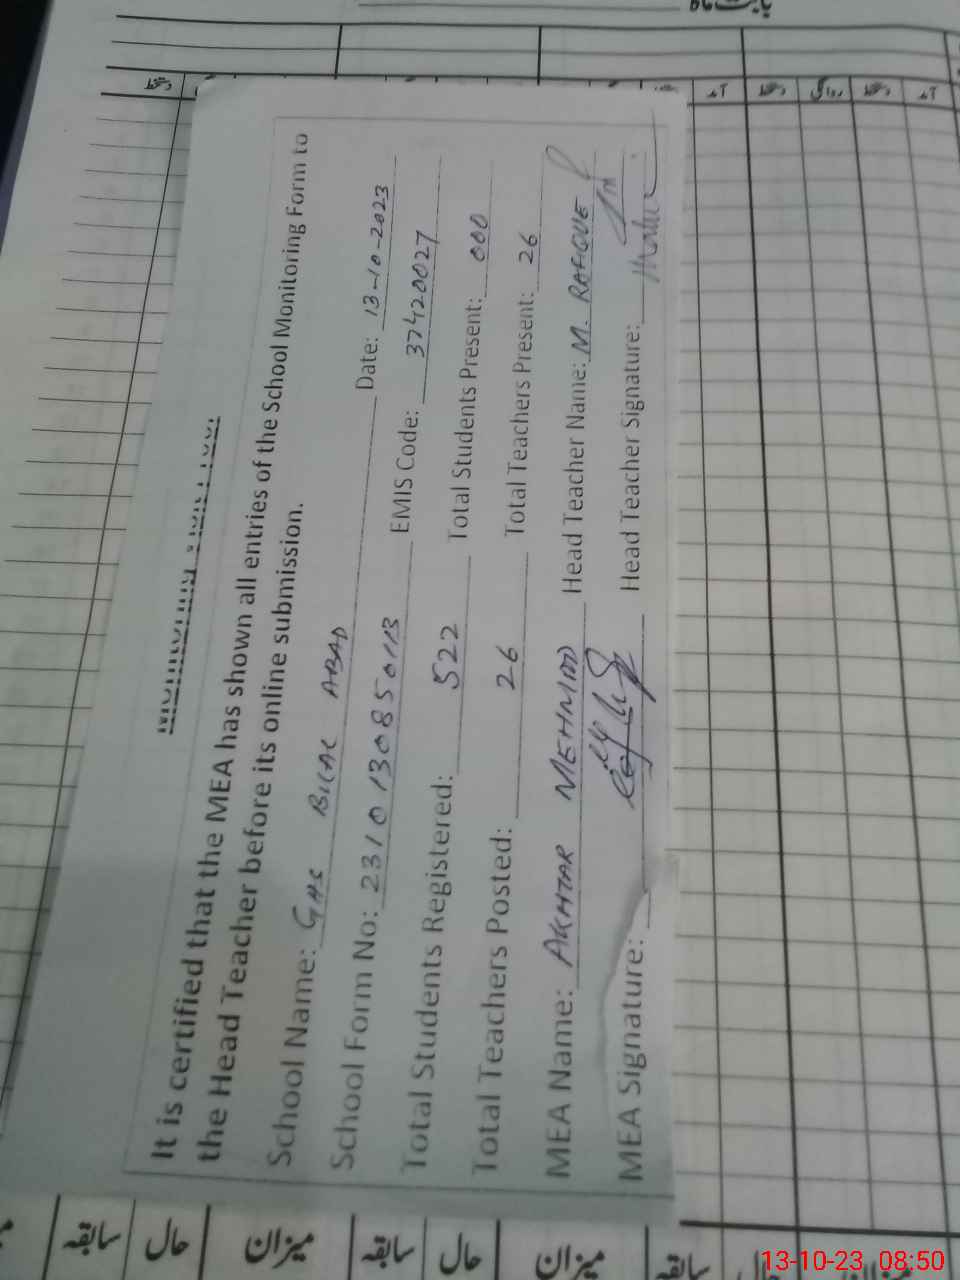 It is certified that the MEA has shown all entries of the School Monitoring Form to
the Head Teacher before its online submission.
School Name: GHS BILAL ABAD Date: 13-10-2023
School Form No: 23101308501113 EMIS Code: 37420027
Total Students Registered: 522 Total Students Present: 000
Total Teachers Posted: 26 Total Teachers Present: 26
MEA Name: AKHTAR MEHMOOD Head Teacher Name: M. RAFIQUE
MEA Signature: Head Teacher Signature:
سابقہ
حال
میزان
سابقہ
حال
میزان
سابقہ
13-10-23 08:50